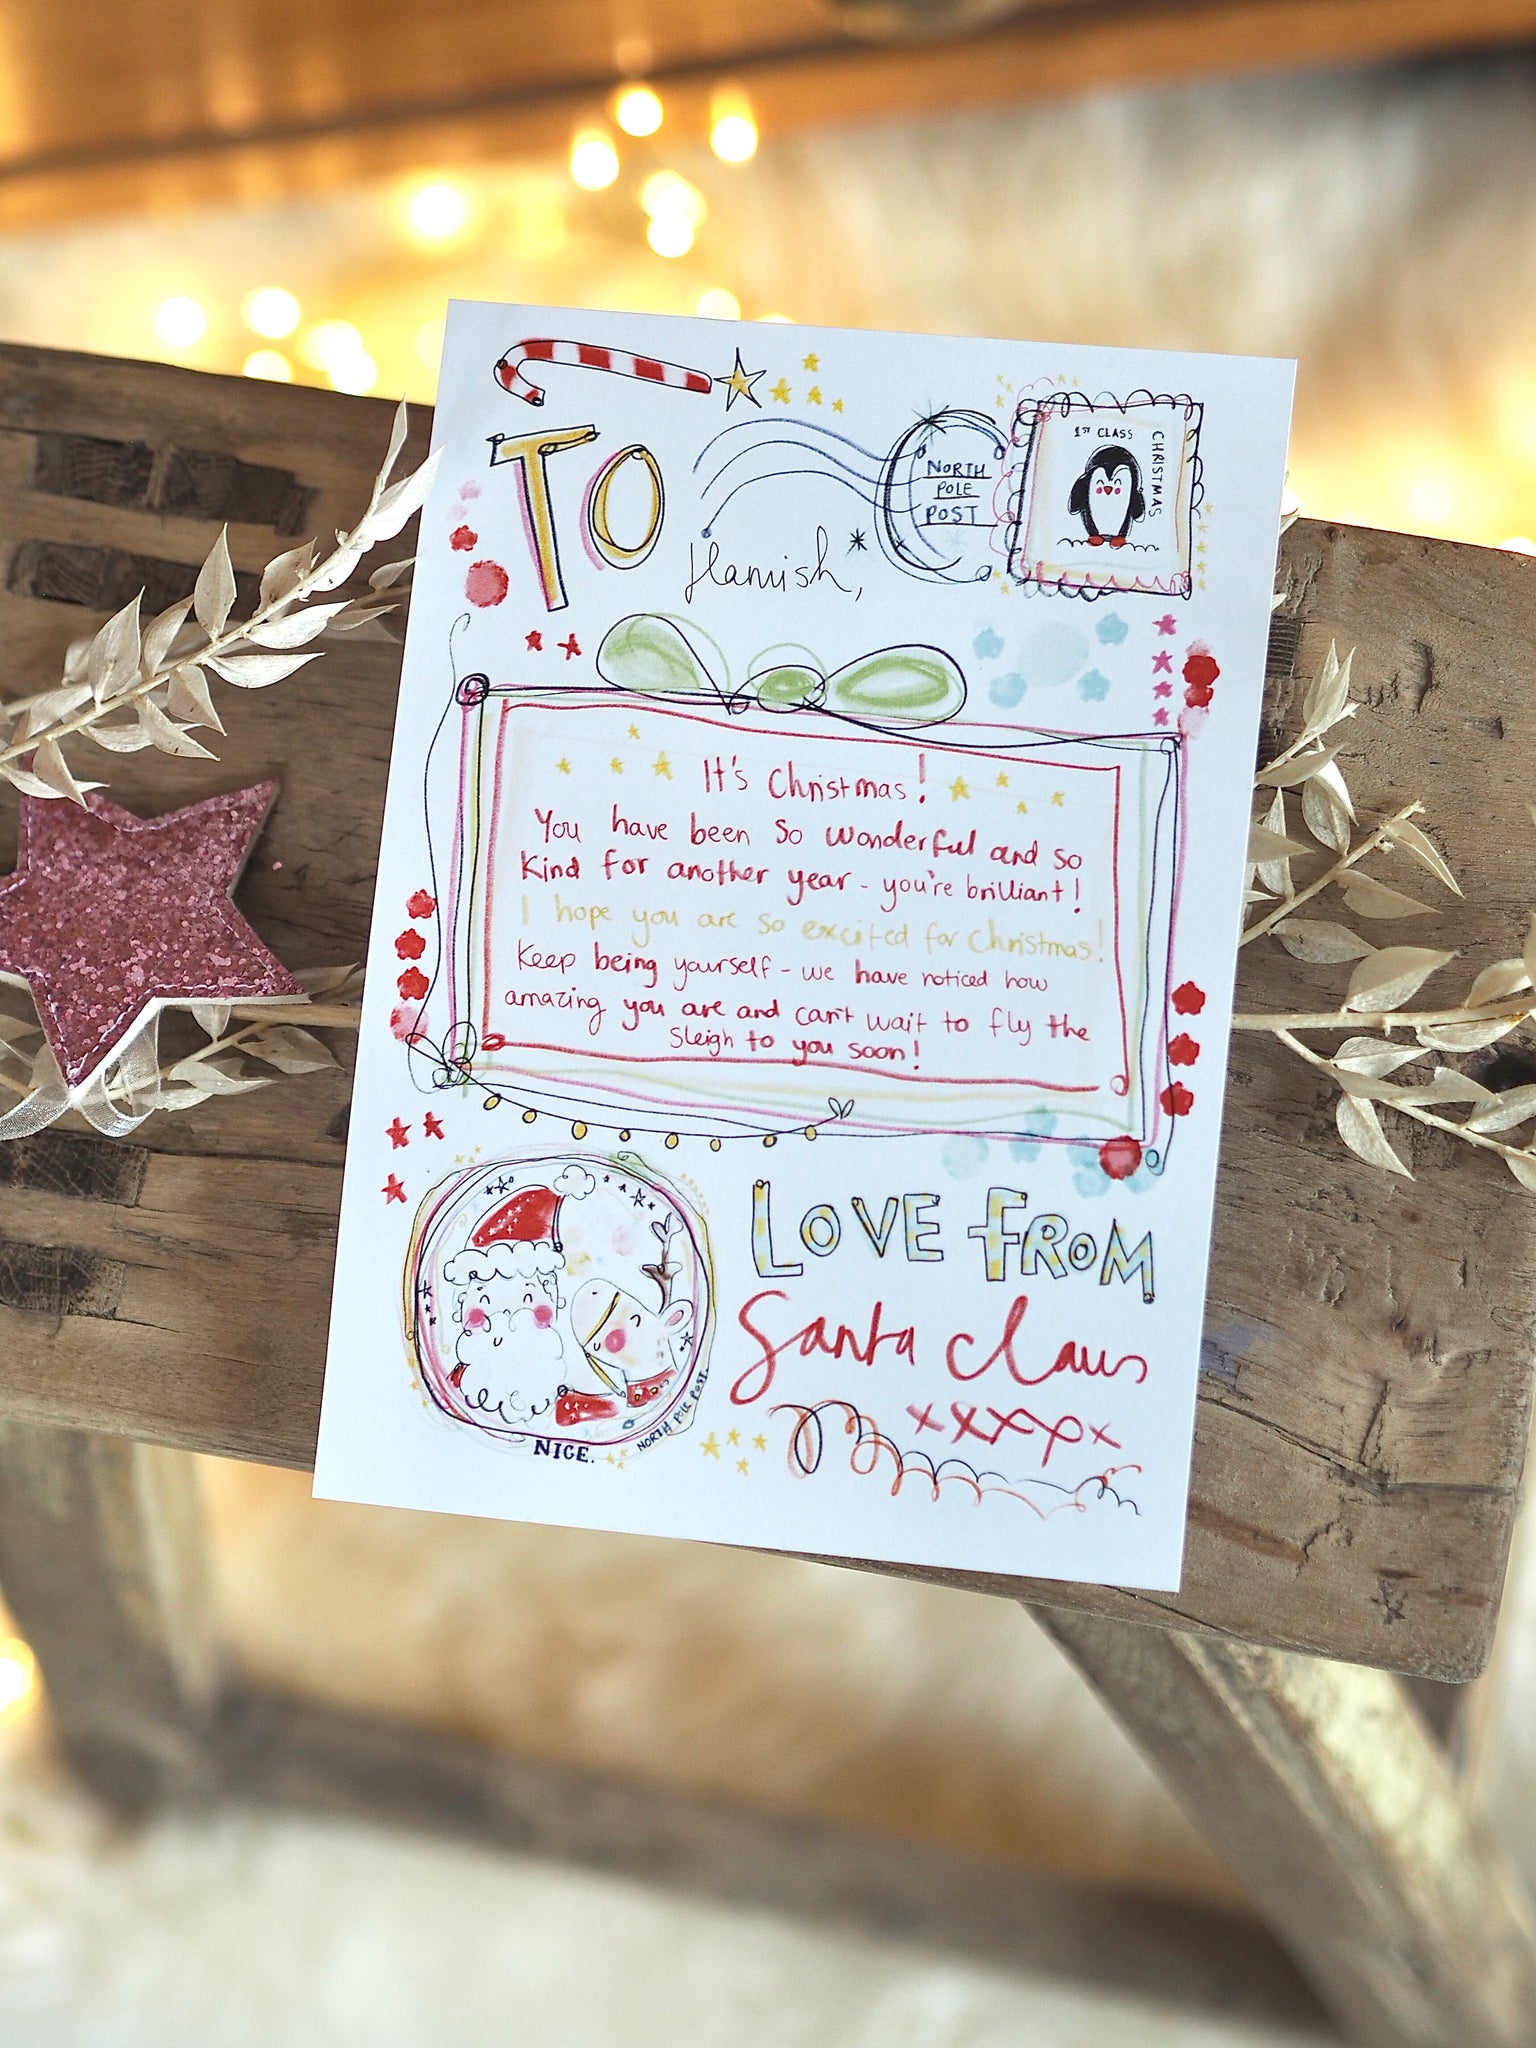 TO
NORTH
POLE
POST
1ST CLASS
CHRISTMAS
Hamish,
It's Christmas!
You have been so wonderful and so
kind for another year - you're brilliant!
I hope you are so excited for Christmas!
Keep being yourself - we have noticed how
amazing you are and can't wait to fly the
sleigh to you soon!
LOVE FROM
Santa Claus
xxxxxx
NICE.
NORTH POLE POST.